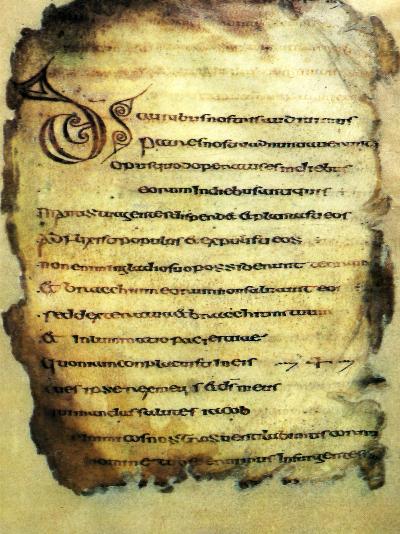 DS auribus nostris audivimus
patres nostri adnuntiaverunt
opus quod operatus es in diebus
eorum In diebus antiquis
Manus tua gentes disperdet et plantasti eos
Adflixisti populos et expulisti eos
non enim in gladio suo possiderunt terram
et bracchium eorum non salvavit eos
sed dextera tua et bracchium tuum
et Inluminatio faciei tuae
Quoniam conplacuisti In eis
tu es ipse rex meus et ds meus
qui mandas salutes iacob
inimicos nostros ventilabimus cornu
nomine tuo Insurgentes